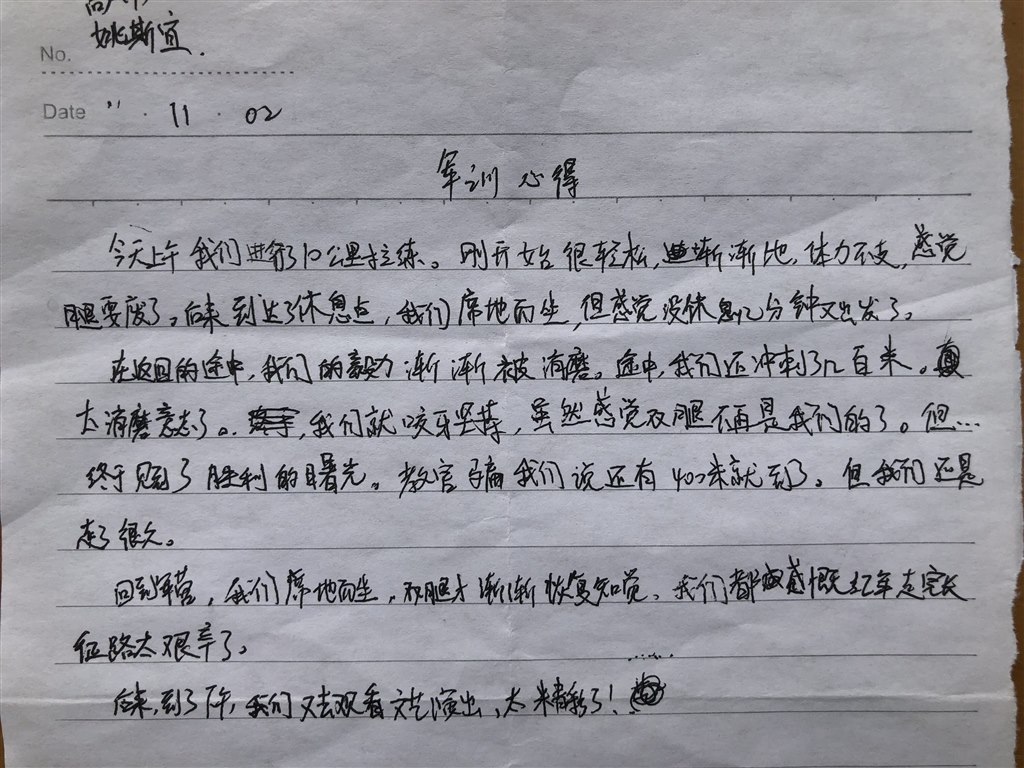 姚斯宜.
No.
Date " · 11 · 02
军训心得
今天上午我们进行了10公里拉练。刚开始很轻松,渐渐地,体力不支,感觉
腿要废了。后来到达了休息点,我们席地而坐,但感觉没休息几分钟又出发了。
在返回的途中,我们的毅力渐渐被消磨。途中,我们还冲刺了几百米。
太消磨意志了。,我们就咬牙坚持,虽然感觉双腿不再是我们的了。但…
终于见到了胜利的曙光。教官骗我们说还有400米就到了。但我们还是
走了很久。
回到军营,我们席地而坐,双腿才渐渐恢复知觉。我们都感慨红军走完长
征路太艰辛了。
后来,到了下午,我们又去观看文艺演出,太精彩了!